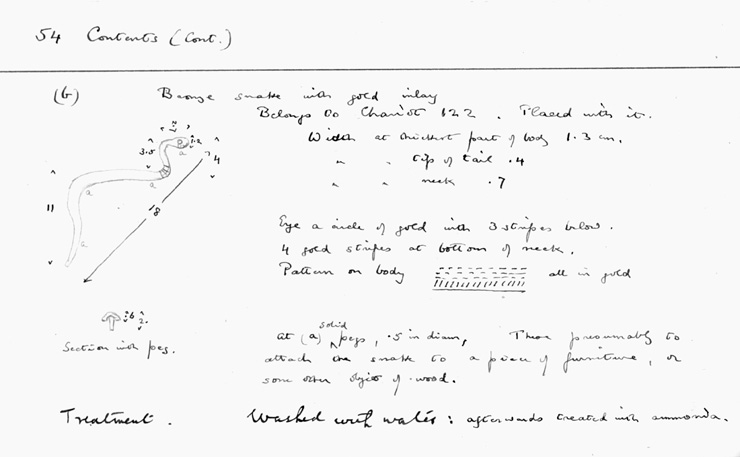 54 Contents (Cont.)
(b) Bronze snake with gold inlay
Belongs to Chariot 122. Placed with it.
Width at thickest part of body 1.3 cm.
" " tip of tail .4
" " neck .7
3.5
1.2
a
4
a
a
11
18
a
Eye a circle of gold with 3 stripes below.
4 gold stripes at bottom of neck.
Pattern on body all in gold
.6
2.
Section with peg.
At (a) solid pegs, .5 in diam, These presumably to
attach the snake to a piece of furniture, or
some other object of wood.
Treatment. Washed with water: afterwards treated with ammonia.